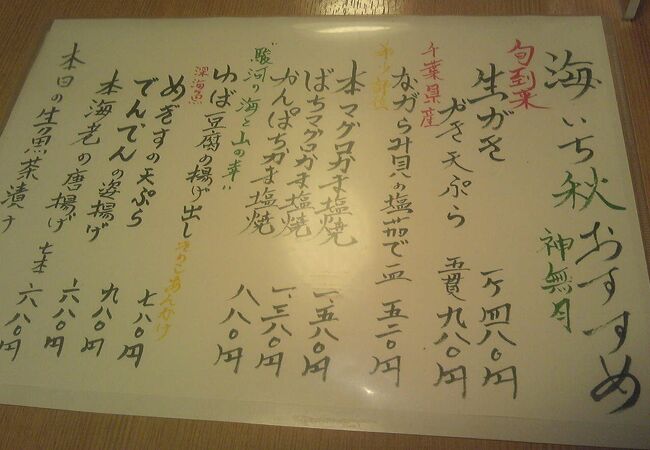 海いち秋おすすめ
神無月
旬到来
生がき 一ケ 四八〇円
かき天ぷら 五貫 九八〇円
千葉県産
ながらみ貝の塩茹で 一皿 五二〇円
本マグロかま塩焼
ばちマグロかま塩焼 一、五八〇円
かんぱちかま塩焼 一、三八〇円
"駿河の海と山の幸"
ゆば豆腐の揚げ出し きのこあんかけ 八八〇円
深海魚
めぎすの天ぷら 七八〇円
でんでんの姿揚げ 九八〇円
本海老の唐揚げ 七本 六八〇円
本日の生魚茶漬け 六八〇円